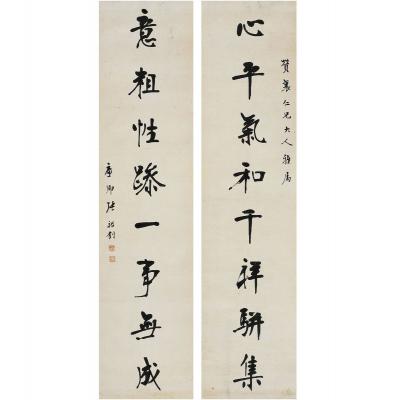 贊襄仁兄大人雅屬
心平氣和千祥駢集
意粗性躁一事無成
廉卿張裕釗